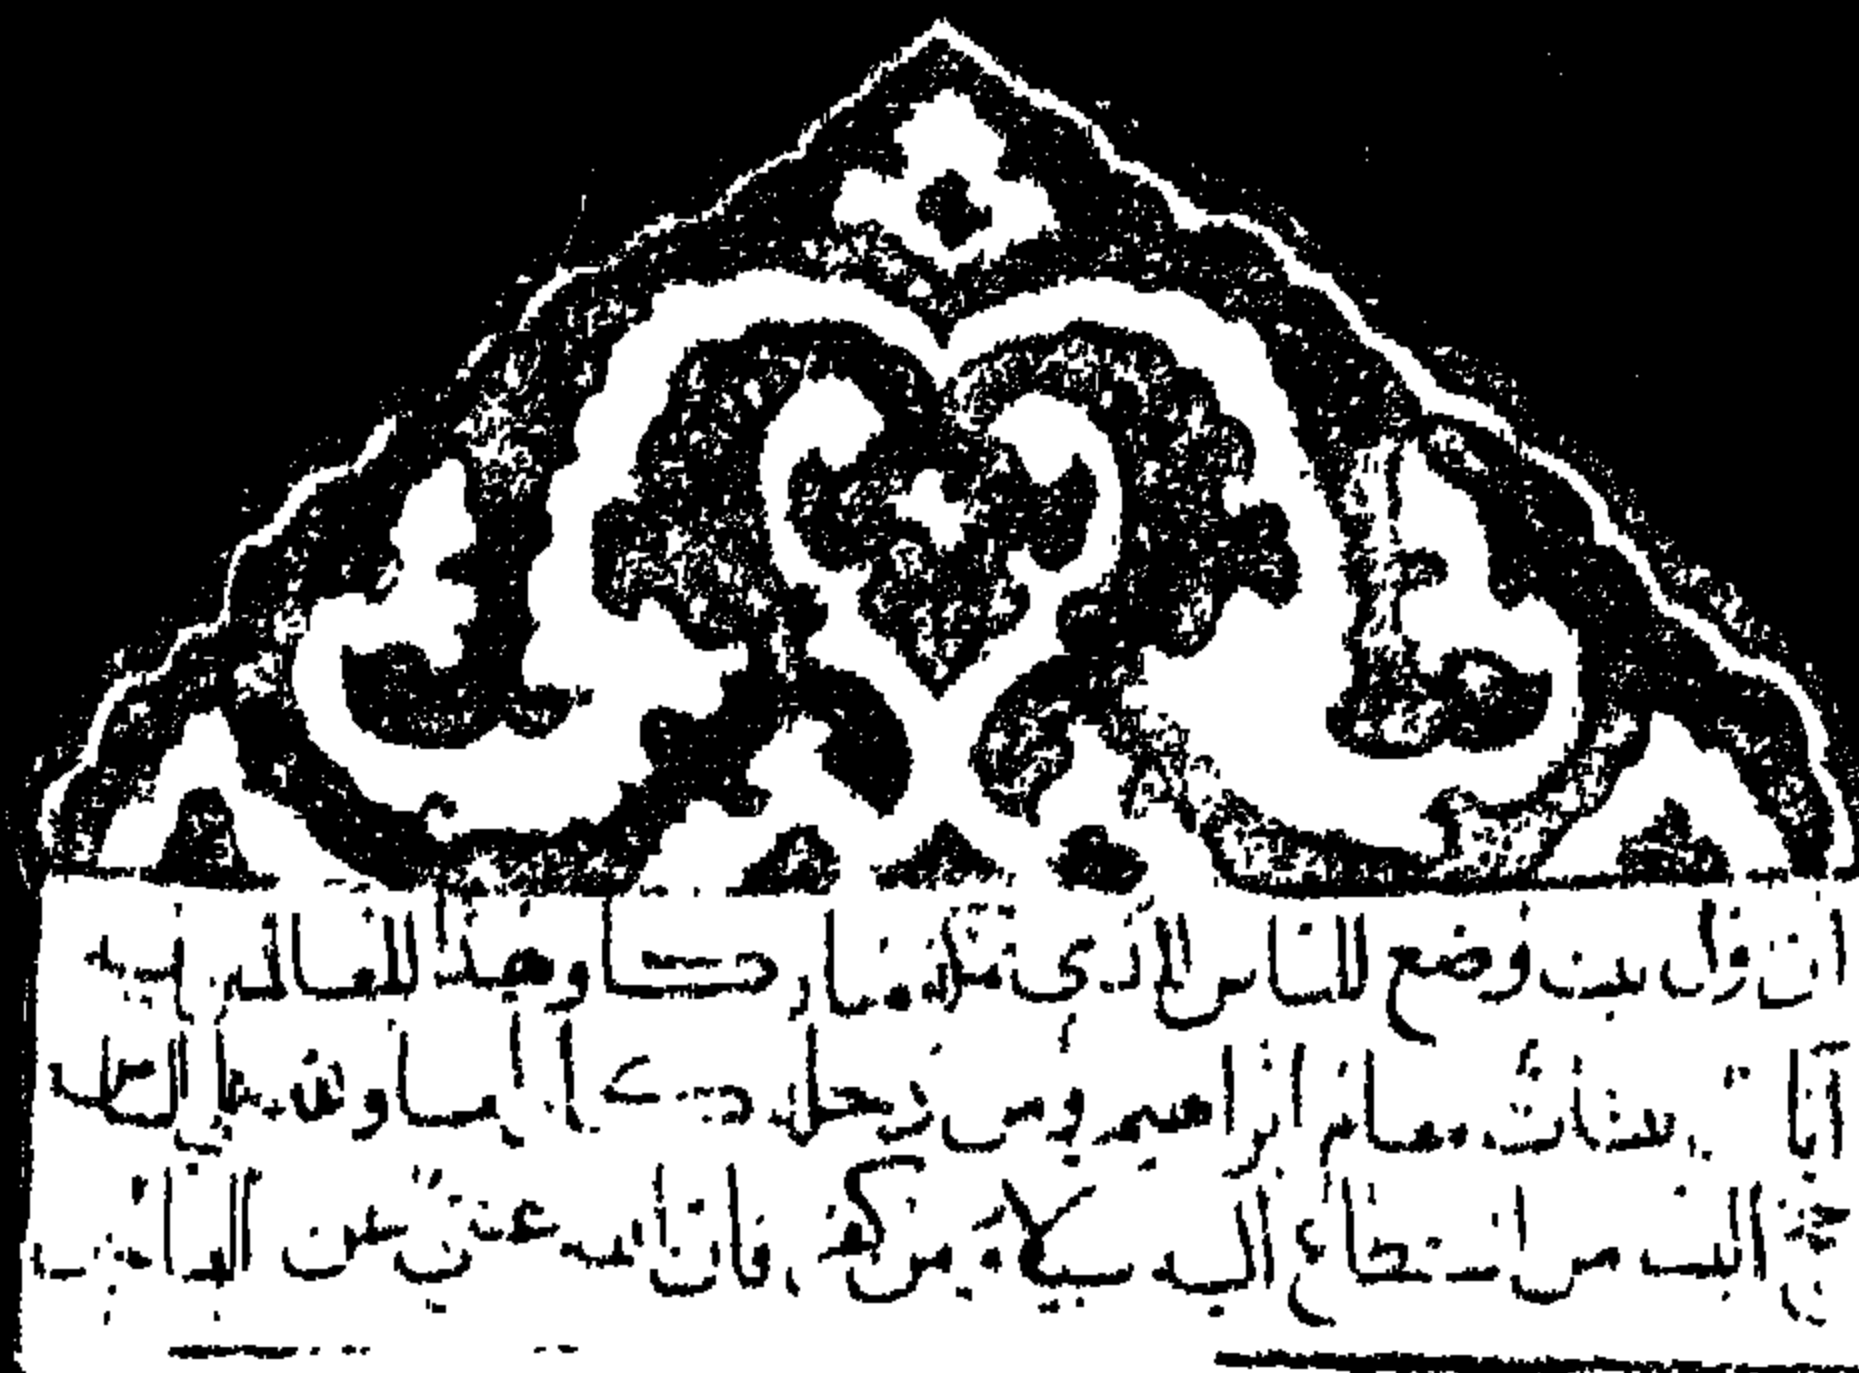 ان اول بيت وضع للناس للذى ببكة مباركا وهدا للعالمين فيه
آيات بينات مقام ابراهيم ومن دخله كان امنا ولله على الناس
حج البيت من استطاع اليه سبيلا ومن كفر فان الله غنى عن العالمين